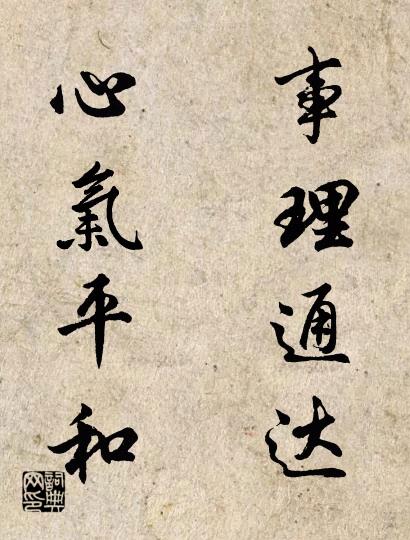 事理通达
心氣平和
詞典网印